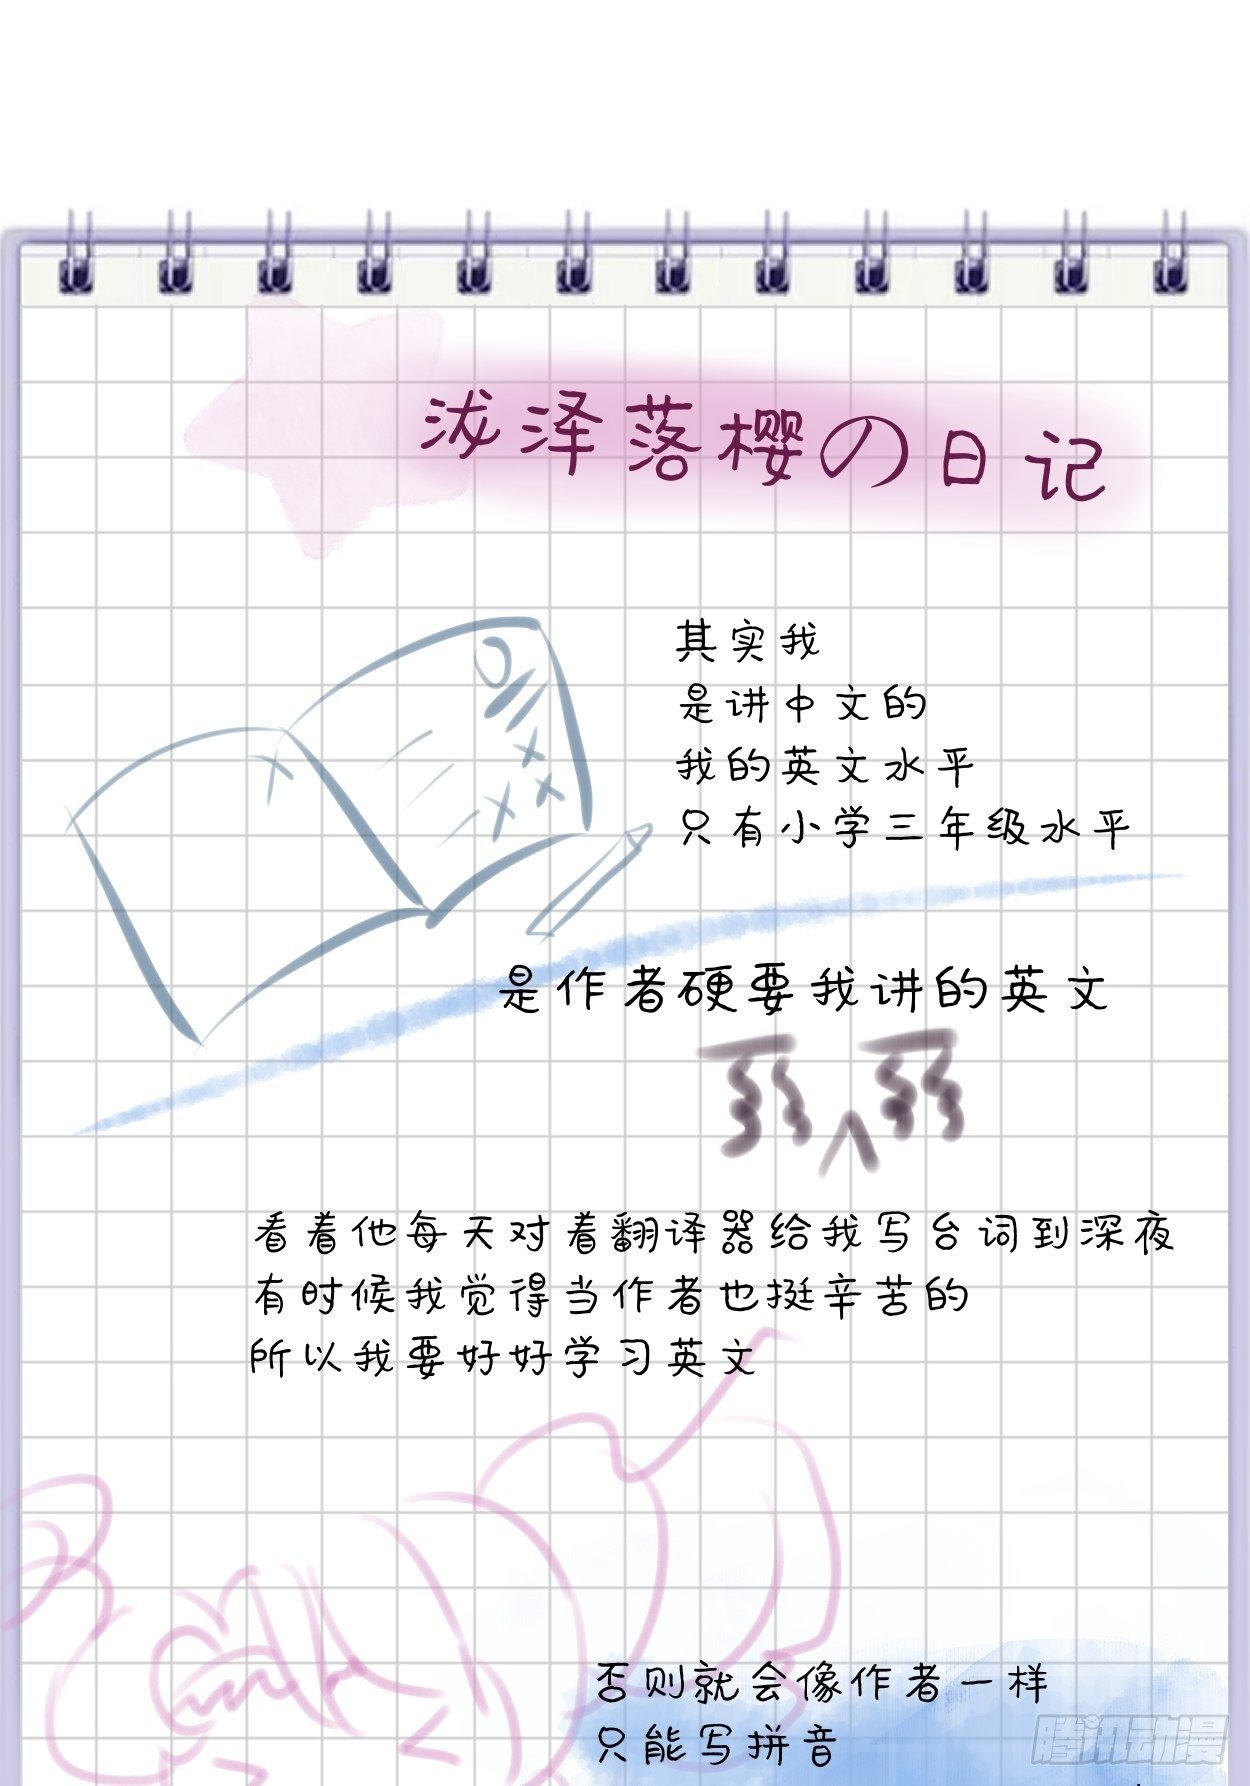 泷泽落樱の日记
其实我
是讲中文的
我的英文水平
只有小学三年级水平
是作者硬要我讲的英文
看着他每天对着翻译器给我写台词到深夜
有时候我觉得当作者也挺辛苦的
所以我要好好学习英文
否则就会像作者一样
只能写拼音
腾讯动漫